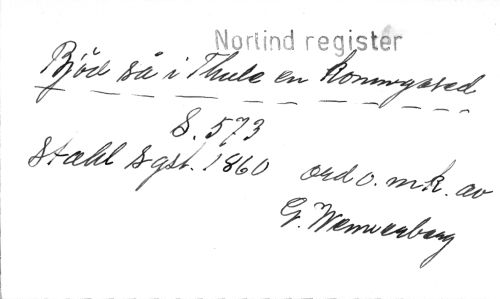 Norlind register
Bjöd så i Thule en konungased
S. 573
Stahl Sgsl. 1860 ord o. mk. av
G. Wennerberg